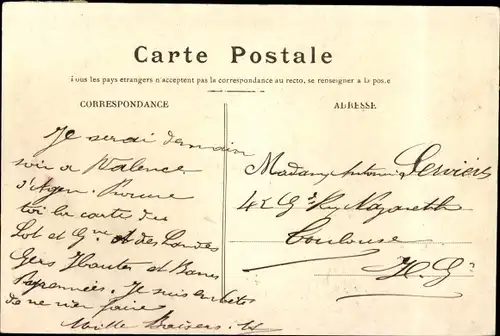 Carte Postale
Tous les pays étrangers n'acceptent pas la correspondance au recto, se renseigner à la poste
CORRESPONDANCE
ADRESSE
Je serai demain
soir a Valence
d'Agen.
toi la carte du
Lot et Gne et des Landes
Gers Hautes et Basses
Pyrennées. Je suis
de ne rien faire
Mille Baisers
Madame Antonin
42 Gde Rue Nazareth
Toulouse
H. Gne